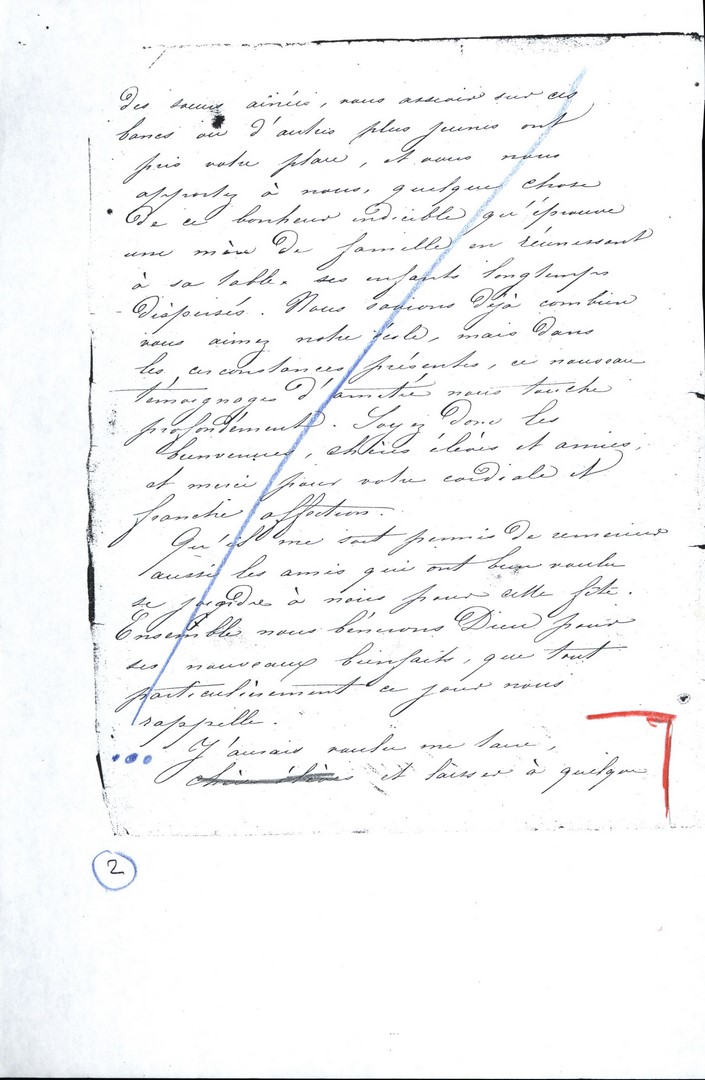 des sœurs aînées, vous asseoir sur ces
bancs où d'autres plus jeunes ont
pris votre place, et vous nous
apportez à nous, quelque chose
de ce bonheur indicible qu'éprouve
une mère de famille en réunissant
à sa table, ses enfants longtemps
dispersés. Nous savions déjà combien
vous aimez notre école, mais dans
les circonstances présentes, ce nouveau
témoignages d'amitié nous touche
profondément. Soyez donc les
bienvenues, chères élèves et amies,
et merci pour votre cordiale et
franche affection.
Qu'il me soit permis de remercier
aussi les amis qui ont bien voulu
se joindre à nous pour cette fête.
Ensemble nous bénirons Dieu pour
ses nouveaux bienfaits, que tout
particulièrement ce jour nous
rappelle.
J'aurais voulu me taire,
chères élèves et laisser à quelque
2